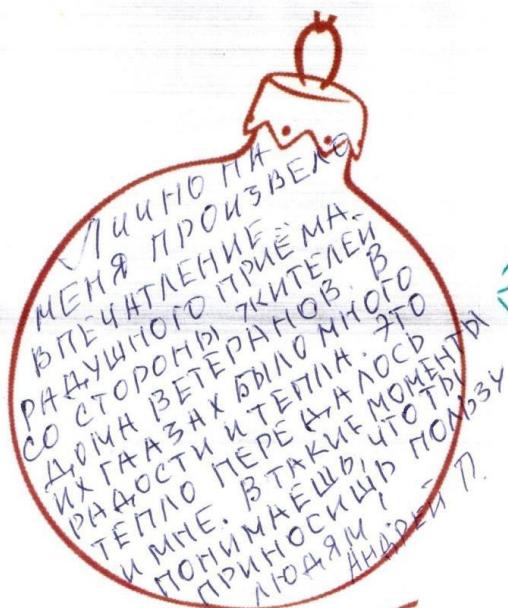 ЛИЧНО НА
МЕНЯ ПРОИЗВЕЛО
ВПЕЧАТЛЕНИЕ
РАДУШНОГО ПРИЁМА.
СО СТОРОНЫ ЖИТЕЛЕЙ
ДОМА ВЕТЕРАНОВ. В
ИХ ГЛАЗАХ БЫЛО МНОГО
РАДОСТИ И ТЕПЛА. ЭТО
ТЕПЛО ПЕРЕДАЛОСЬ
И МНЕ. В ТАКИЕ МОМЕНТЫ
ПОНИМАЕШЬ, ЧТО ТЫ
ПРИНОСИШЬ ПОЛЬЗУ
ЛЮДЯМ!
АНДРЕЙ П.